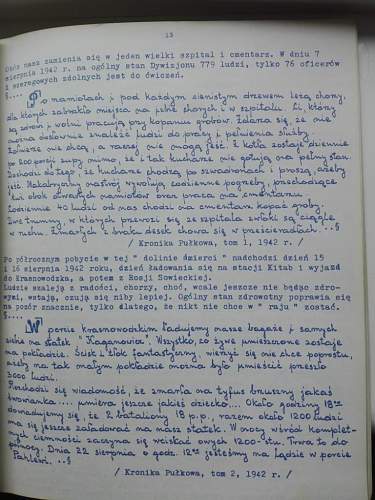 13
Obóz nasz zamienia się w jeden wielki szpital i cmentarz. W dniu 7
sierpnia 1942 r. na ogólny stan Dywizjonu 779 ludzi, tylko 76 oficerów
i szeregowych zdolnych jest do ćwiczeń.
§....
Po namiotach i pod każdym cienistym drzewem leżą chorzy,
dla których zabrakło miejsca na izbie chorych i w szpitalu. Ci, którzy
są zdrowi, wolni pracują przy kopaniu grobów. Zdarza się, że nie
można dosłownie znaleźć ludzi do pracy i pełnienia służby.
Żołnierze nie chcą, a raczej nie mogą jeść. Z kotła zostaje dziennie
po 200 porcji zupy mimo, że i tak kucharze nie gotują na pełny stan.
Dochodzi do tego, że kucharze chodzą po szwadronach i proszą, ażeby
jeść. Makabryczny nastrój wywołują codzienne pogrzeby, przechodzące
obok otwartych namiotów oraz praca na cmentarzu.
Codziennie 40 ludzi od nas chodzi na cmentarz kopać groby.
Dwie trumny, w których przewozi się ze szpitala zwłoki są ciągle
w ruchu. Zmarłych z braku desek chowa się w prześcieradłach. ...§
/ Kronika Pułkowa, tom 1, 1942 r. /
Po półrocznym pobycie w tej " dolinie śmierci " nadchodzi dzień 15
i 16 sierpnia 1942 roku, dzień ładowania się na stacji Kitab i wyjazd
do Krasnowodzka, a potem z Rosji Sowieckiej.
Ludzie szaleją z radości, chorzy, choć, wcale jeszcze nie będąc zdro-
wymi, wstają, czują się niby lepiej. Ogólny stan zdrowotny poprawia się
na pozór znacznie, tylko dlatego, że nikt nie chce w " raju " zostać.
§....
W porcie krasnowodzkim ładujemy nasze bagaże i samych
siebie na statek "Kaganowicz". Wszystko, co żywe umieszczone zostaje
na pokładzie. Ścisk i tłok fantastyczny, wierzyć się nie chce poprostu,
żeby na tak małym pokładzie można było pomieścić przeszło
3000 ludzi.
Rozchodzi się wiadomość, że zmarła na tyfus brzuszny jakaś
... umiera jeszcze jakieś dziecko... Około godziny 18ej
dowiadujemy się, że 2 bataliony 18 p.p. razem około 1200 ludzi
ma się jeszcze załadować na nasz statek. W nocy wśród komplet-
nych ciemności zaczyna się wciskać owych 1200-stu. Trwa to do
północy. Dnia 22 sierpnia o godz. 12ej jesteśmy na lądzie w porcie
Pahlevi. ...§
/ Kronika Pułkowa, tom 2, 1942 r. /